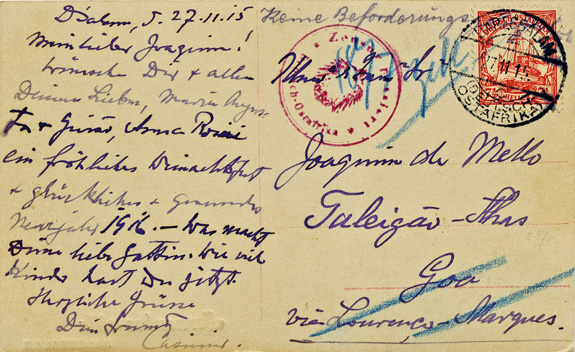 D'Salam, d. 27.11.15
Mein lieber Joaquim!
wünsche Dir & allen
Deinen Lieben, Maria Augus-
ta &
ein fröhliches Weihnachtsfest
& glückliches & gesundes
Neujahr 1916 – was macht
Deine liebe Gattin. Wie viel
Kinder hast Du jetzt.
Herzliche Grüsse
Dein Freund
Casimir
Keine Beförderungs
DEUTSCH-
OSTAFRIKA
ch-Ostafrika
Joaquim de Mello
Taleigão-Ilhas
Goa
via Lourenço-Marques.